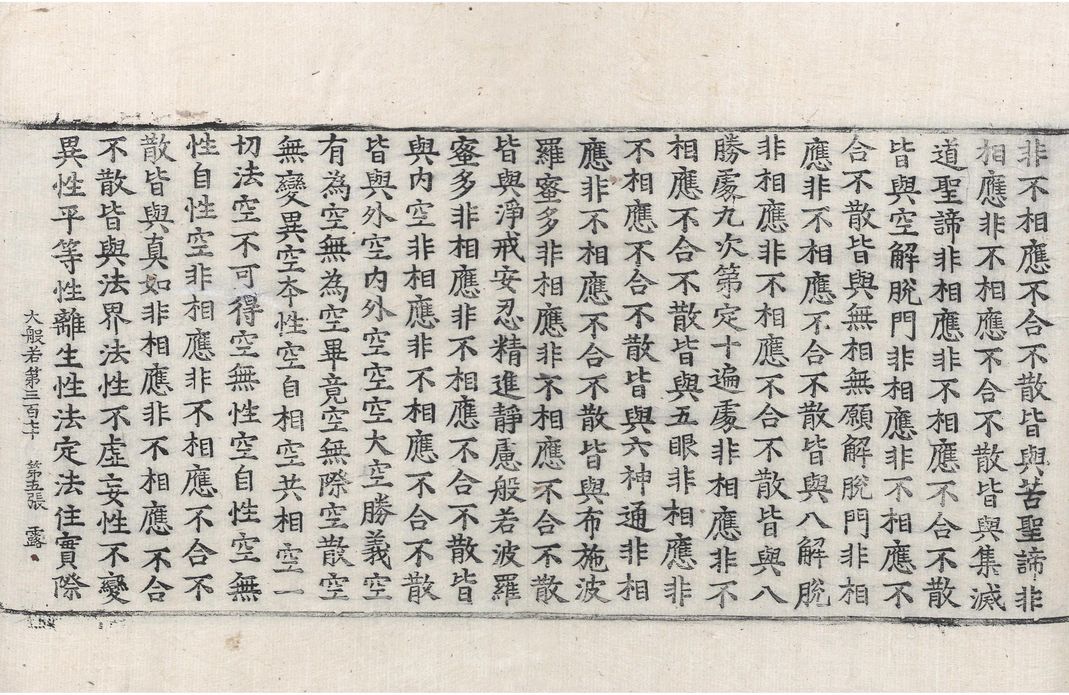 非不相應不合不散皆與苦聖諦非
相應非不相應不合不散皆與集滅
道聖諦非相應非不相應不合不散
皆與空解脫門非相應非不相應不
合不散皆與無相無願解脫門非相
應非不相應不合不散皆與八解脫
非相應非不相應不合不散皆與八
勝處九次第定十遍處非相應非不
相應不合不散皆與五眼非相應非
不相應不合不散皆與六神通非相
應非不相應不合不散皆與布施波
羅蜜多非相應非不相應不合不散
皆與淨戒安忍精進靜慮般若波羅
蜜多非相應非不相應不合不散皆
與內空非相應非不相應不合不散
皆與外空內外空空空大空勝義空
有為空無為空畢竟空無際空散空
無變異空本性空自相空共相空一
切法空不可得空無性空自性空無
性自性空非相應非不相應不合不
散皆與真如非相應非不相應不合
不散皆與法界法性不虛妄性不變
異性平等性離生性法定法住實際
大般若第三百七十 第五張 露